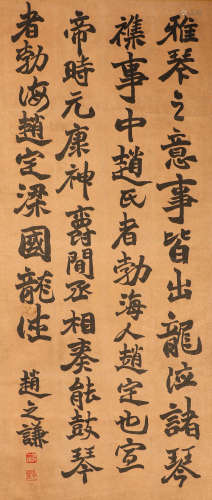 雅琴之意事皆出龍泣諸琴
襍事中趙氏者勃海人趙定也宣
帝時元康神爵間丞相奏能鼓琴
者勃海趙定梁國龍泣
趙之謙